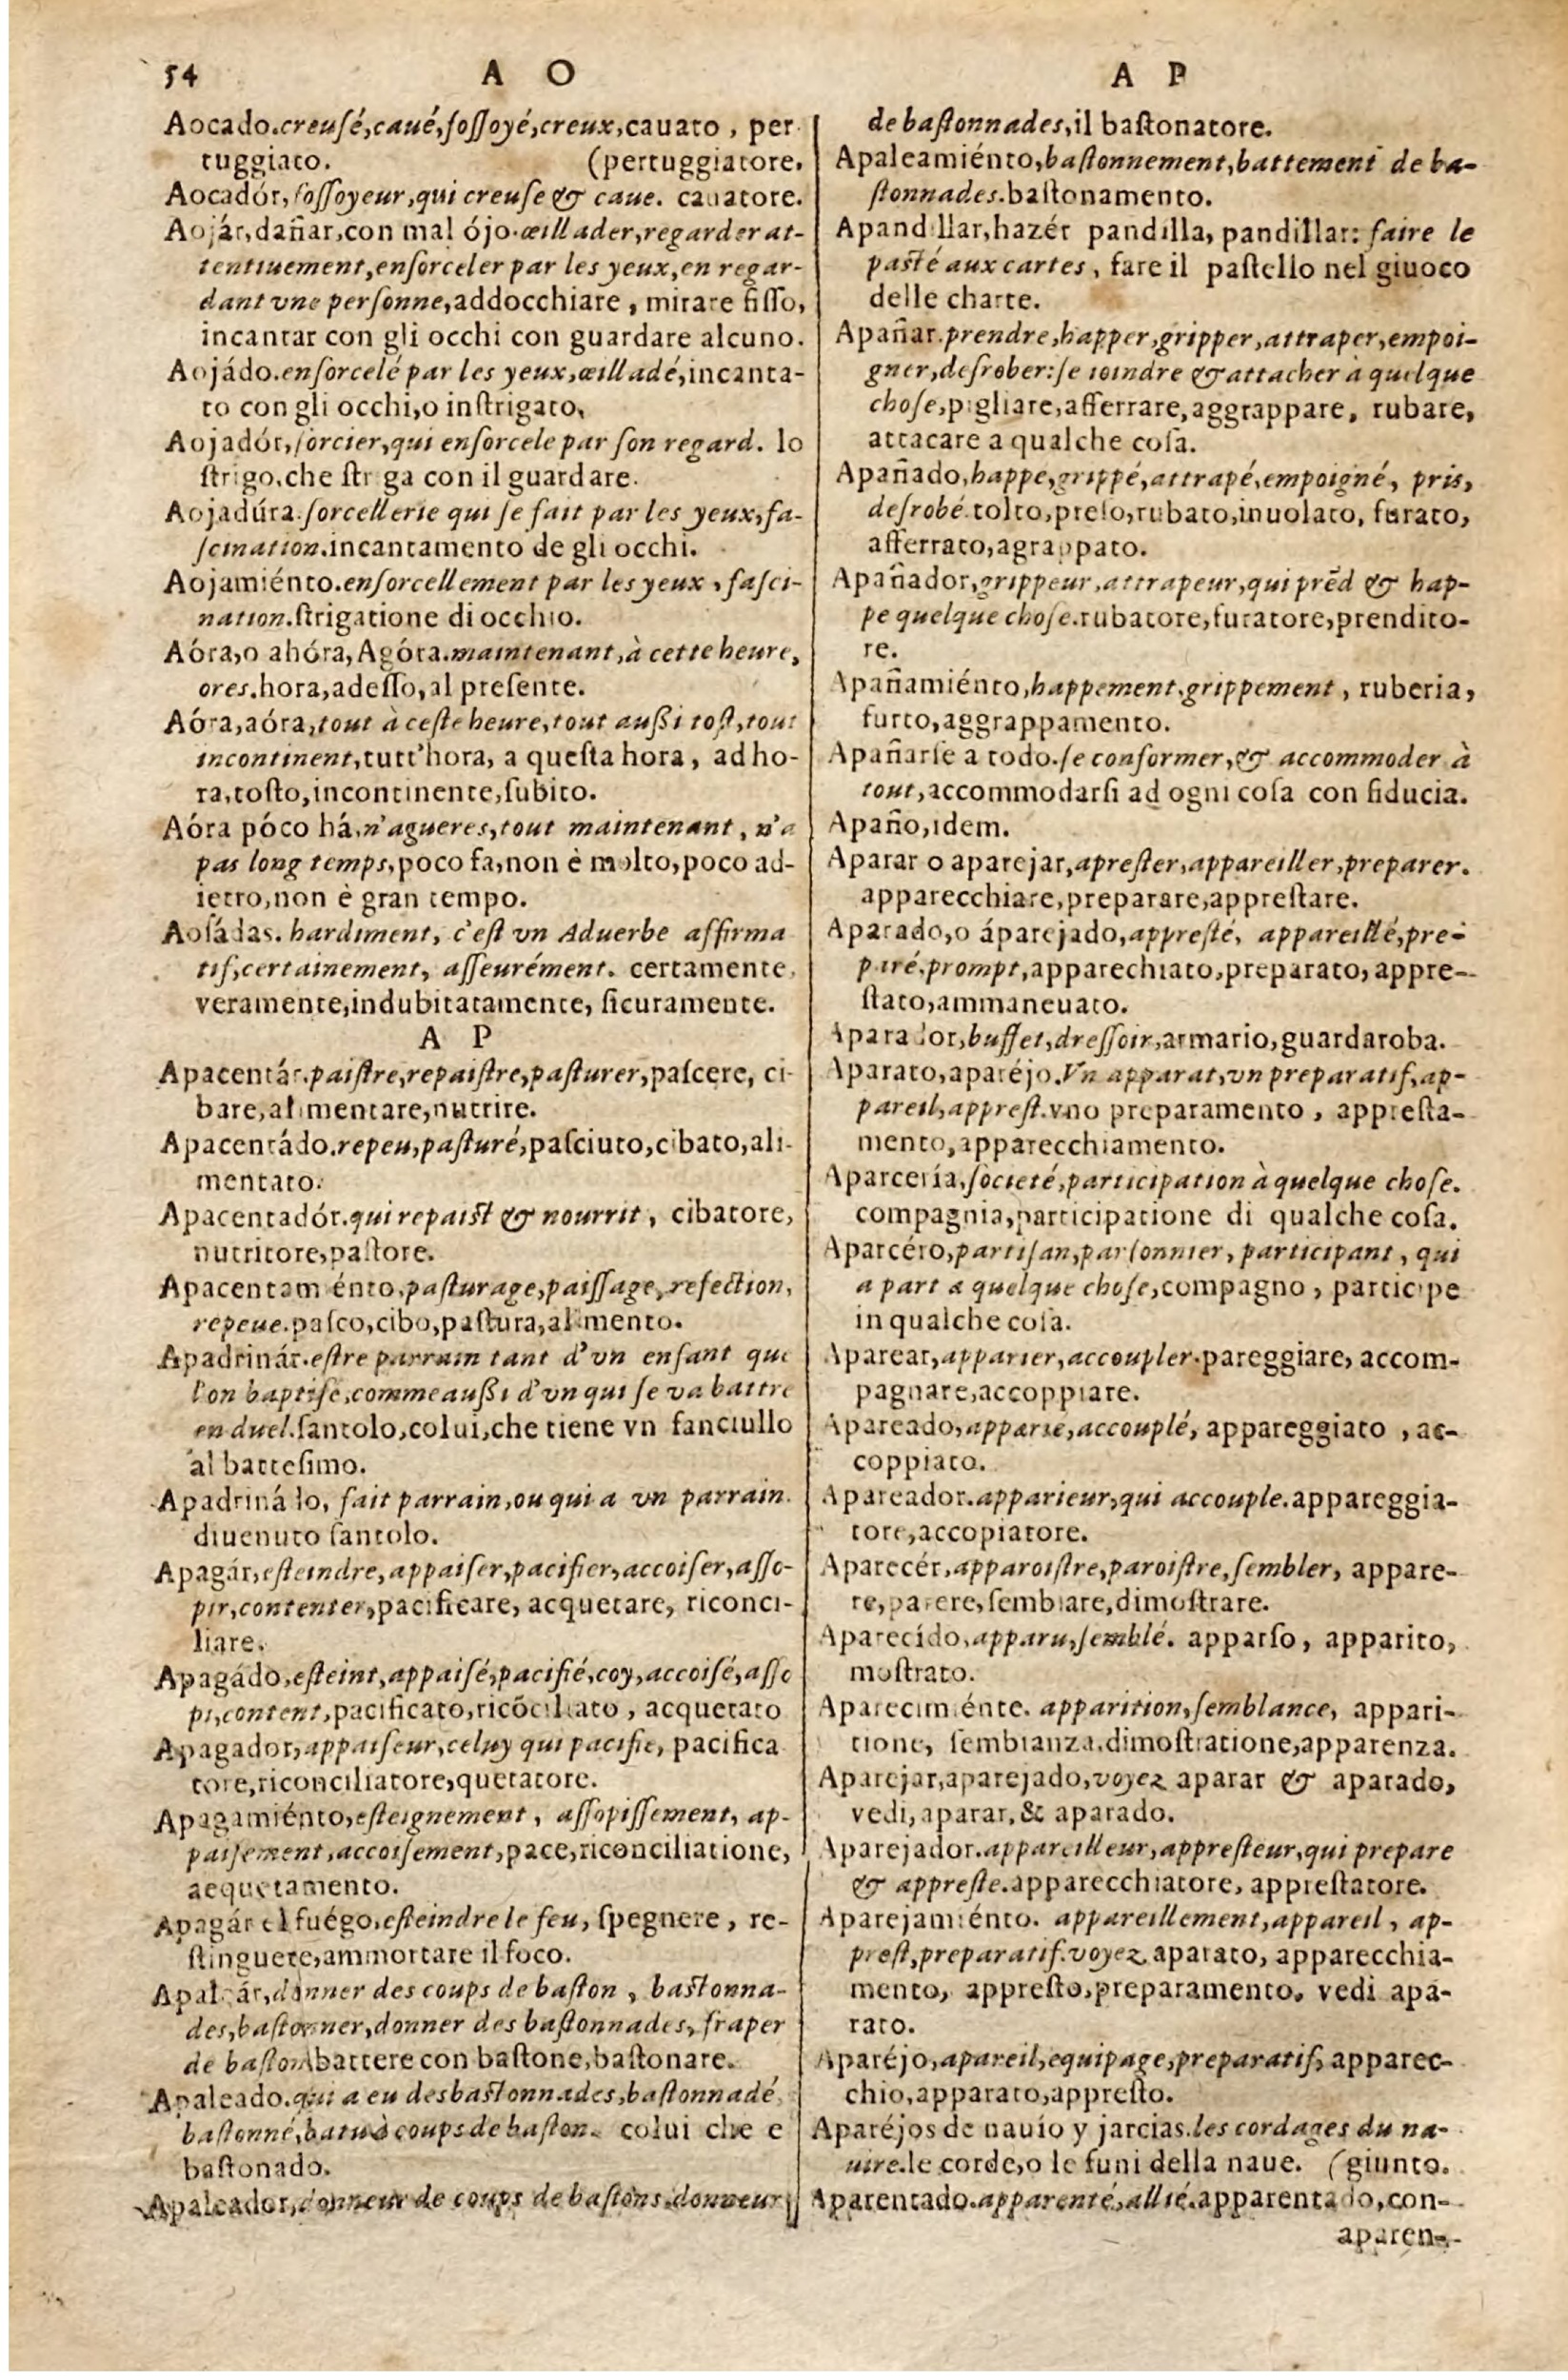 54
A O
Aocado.creuſé,caué,foſſoyé,creux,cauato, per
tuggiato. (pertuggiatore.
Aocadór, foſſoyeur,qui creuſe & caue. cauatore.
Aojár,dañar,con mal ójo.œillader,regarder at-
tentiuement,enſorceler par les yeux,en regar-
dant vne perſonne,addocchiare, mirare fiſſo,
incantar con gli occhi con guardare alcuno.
Aojádo.enſorcelé par les yeux,œilladé,incanta-
to con gli occhi,o inſtrigato,
Aojadór,ſorcier,qui enſorcele par ſon regard. lo
ſtrigo,che ſtriga con il guardare.
Aojadúra.ſorcellerie qui ſe fait par les yeux,fa-
ſcination.incantamento de gli occhi.
Aojamiénto.enſorcellement par les yeux, faſci-
nation.ſtrigatione di occhio.
Aóra,o ahóra,Agóra.maintenant,à cette heure,
ores.hora,adeſſo,al preſente.
Aóra,aóra,tout à ceſte heure,tout außi toſt,tout
incontinent,tutt'hora, a queſta hora, ad ho-
ra,toſto,incontinente,ſubito.
Aóra póco há,n'agueres,tout maintenant, n'a
pas long temps,poco fa,non è molto,poco ad-
ietro,non è gran tempo.
Aoſádas. hardiment, c'eſt vn Aduerbe affirma
tif,certainement, aſſeurément. certamente,
veramente,indubitatamente, ſicuramente.
A P
Apacentár.paiſtre,repaiſtre,paſturer,paſcere, ci-
bare,alimentare,nutrire.
Apacentádo.repeu,paſturé,paſciuto,cibato,ali-
mentato.
Apacentadór.qui repaiſt & nourrit, cibatore,
nutritore,paſtore.
Apacentamiénto,paſturage,paiſſage,refection,
repeue.paſco,cibo,paſtura,alimento.
Apadrinár.eſtre parrain tant d'vn enfant que
l'on baptiſe,comme außi d'vn qui ſe va battre
en duel.ſantolo,colui,che tiene vn fanciullo
al batteſimo.
Apadrinádo, fait parrain,ou qui a vn parrain.
diuenuto ſantolo.
Apagár,eſteindre,appaiſer,pacifier,accoiſer,aſſo-
pir,contenter,pacificare, acquetare, riconci-
liare.
Apagádo,eſteint,appaiſé,pacifié,coy,accoiſé,aſſo
pi,content,pacificato,ricõciliato, acquetato
Apagador,appaiſeur,celuy qui pacifie, pacifica
tore,riconciliatore,quetatore.
Apagamiénto,eſteignement, aſſopiſſement, ap-
paiſement,accoiſement,pace,riconciliatione,
aequetamento.
Apagár el fuégo,eſteindre le feu, ſpegnere, re-
ſtinguere,ammortare il foco.
Apaleár,donner des coups de baſton, baſtonna-
des,baſtonner,donner des baſtonnades,fraper
de baſton battere con baſtone,baſtonare.
Apaleado.qui a eu des baſtonnades,baſtonnadé,
baſtonné,batu à coups de baſton. colui che e
baſtonado.
Apaleador,donneur de coups de baſtons.donneur
A P
de baſtonnades,il baſtonatore.
Apaleamiénto,baſtonnement,battement de ba-
ſtonnades.baſtonamento.
Apandillar,hazér pandilla, pandillar: faire le
paſté aux cartes, fare il paſtello nel giuoco
delle charte.
Apañar.prendre,happer,gripper,attraper,empoi-
gner,deſrober:ſe ioindre & attacher à quelque
choſe,pigliare,afferrare,aggrappare, rubare,
attacare a qualche coſa.
Apañado,happe,grippé,attrapé,empoigné, pris,
deſrobé.tolto,preſo,rubato,inuolato, furato,
afferrato,agrappato.
Apañador,grippeur,attrapeur,qui prẽd & hap-
pe quelque choſe.rubatore,furatore,prendito-
re.
Apañamiénto,happement,grippement, ruberia,
furto,aggrappamento.
Apañarſe a todo.ſe conformer,& accommoder à
tout,accommodarſi ad ogni coſa con fiducia.
Apaño,idem.
Aparar o aparejar,apreſter,appareiller,preparer.
apparecchiare,preparare,appreſtare.
Aparado,o áparejado,appreſté, appareillé,pre-
paré.prompt,apparechiato,preparato, appre-
ſtato,ammaneuato.
Aparador,buffet,dreſſoir,armario,guardaroba.
Aparato,aparéjo.Vn apparat,vn preparatif,ap-
pareil,appreſt.vno preparamento, appreſta-
mento,apparecchiamento.
Aparcería,ſocieté,participation à quelque choſe.
compagnia,participatione di qualche coſa.
Aparcéro,partiſan,parſonnier, participant, qui
a part a quelque choſe,compagno, participe
in qualche coſa.
Aparear,apparier,accoupler.pareggiare, accom-
pagnare,accoppiare.
Apareado,apparie,accouplé, appareggiato, ac-
coppiato.
Apareador.apparieur,qui accouple.appareggia-
tore,accopiatore.
Aparecér,apparoiſtre,paroiſtre,ſembler, appare-
re,parere,ſembiare,dimoſtrare.
Aparecído,apparu,ſemblé. apparſo, apparito,
moſtrato.
Aparecimiénte. apparition,ſemblance, appari-
tione, ſembianza,dimoſtratione,apparenza.
Aparejar,aparejado,voyez aparar & aparado,
vedi,aparar,& aparado.
Aparejador.appareilleur,appreſteur,qui prepare
& appreſte.apparecchiatore, appreſtatore.
Aparejamiénto. appareillement,appareil, ap-
preſt,preparatif.voyez aparato, apparecchia-
mento, appreſto,preparamento. vedi apa-
rato.
Aparéjo,apareil,equipage,preparatif, apparec-
chio,apparato,appreſto.
Aparéjos de nauío y jarcias.les cordages du na-
uire.le corde,o le funi della naue. (giunto.
Aparentado.apparenté,allié.apparentado,con-
aparen-